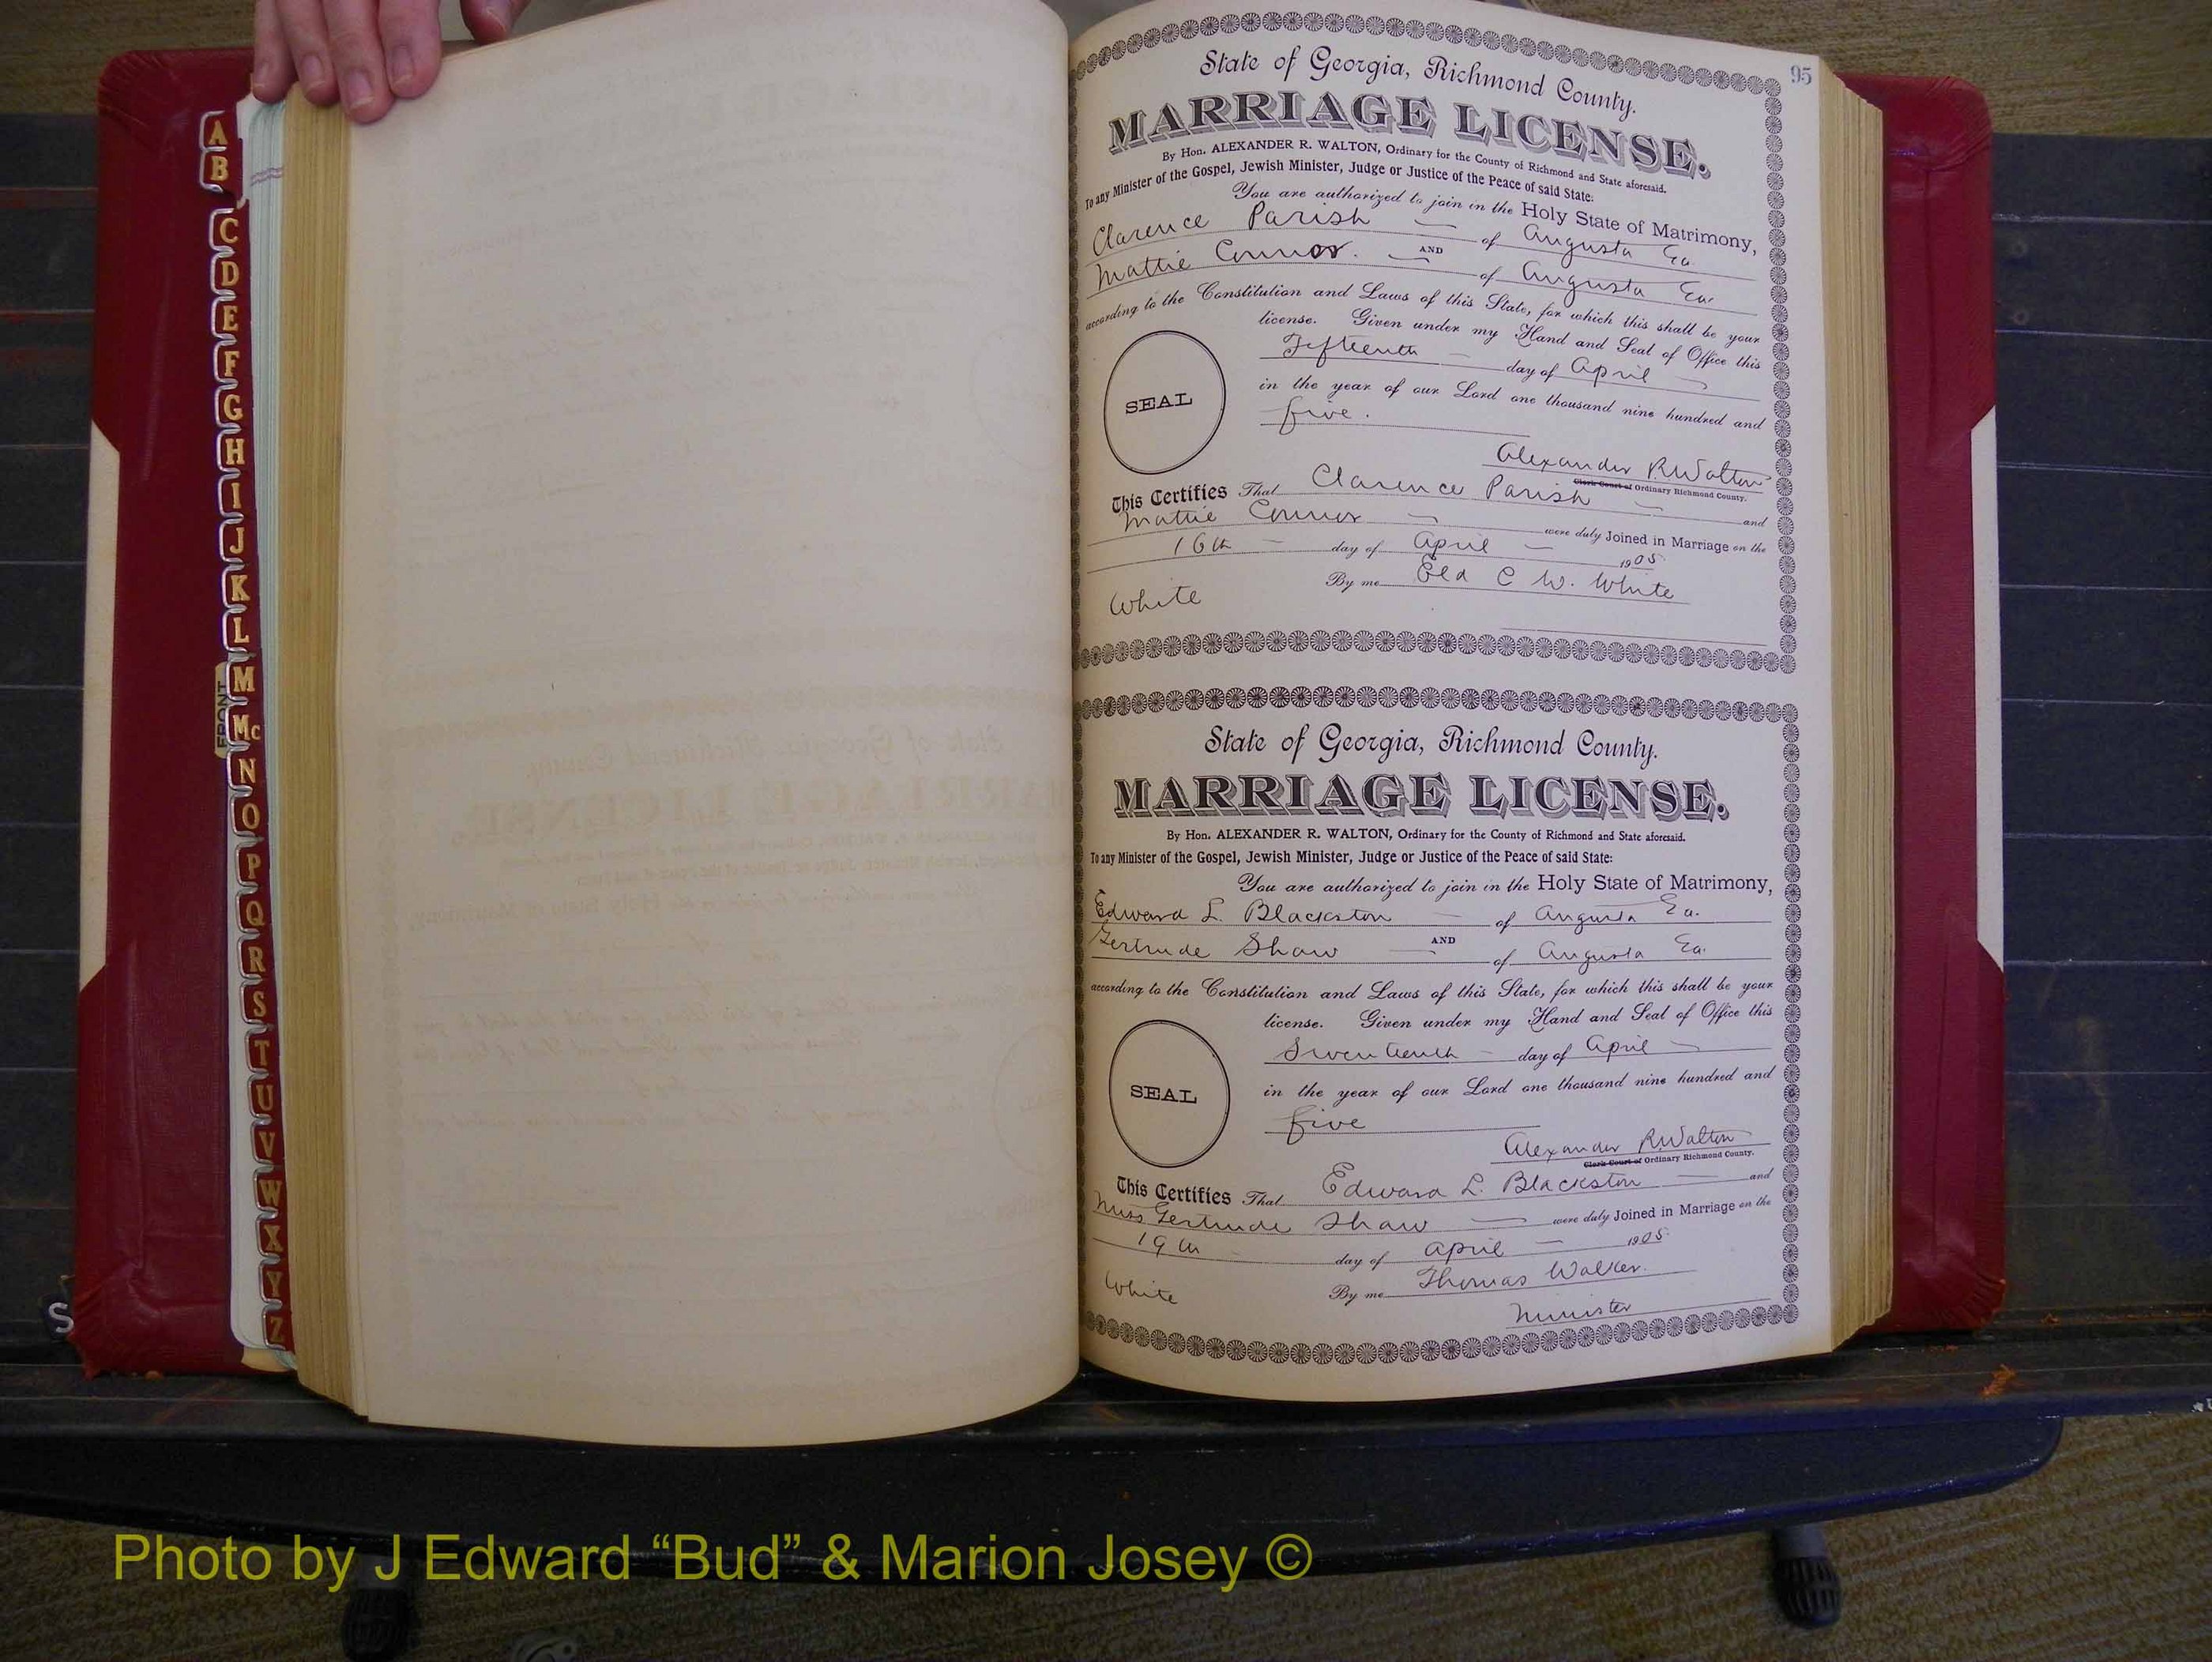 A
B
C
D
E
F
G
H
I
J
K
L
M
Mc
N
O
P
Q
R
S
T
U
V
W
X
Y
Z
FRONT
S
95
State of Georgia, Richmond County.
MARRIAGE LICENSE.
By Hon. ALEXANDER R. WALTON, Ordinary for the County of Richmond and State aforesaid.
To any Minister of the Gospel, Jewish Minister, Judge or Justice of the Peace of said State:
You are authorized to join in the Holy State of Matrimony,
Clarence Parish of Augusta Ga
AND
Mattie Connor. of Augusta Ga
according to the Constitution and Laws of this State, for which this shall be your
license. Given under my Hand and Seal of Office this
Fifteenth day of April
in the year of our Lord one thousand nine hundred and
SEAL
five.
Alexander R. Walton
Clerk Court of Ordinary Richmond County.
This Certifies That Clarence Parish and
Mattie Connor were duly Joined in Marriage on the
16th day of April 1905
By me Eld C W. White
White
State of Georgia, Richmond County.
MARRIAGE LICENSE.
By Hon. ALEXANDER R. WALTON, Ordinary for the County of Richmond and State aforesaid.
To any Minister of the Gospel, Jewish Minister, Judge or Justice of the Peace of said State:
You are authorized to join in the Holy State of Matrimony,
Edward L. Blackston of Augusta Ga.
AND
Gertrude Shaw of Augusta Ga.
according to the Constitution and Laws of this State, for which this shall be your
license. Given under my Hand and Seal of Office this
Seventeenth day of April
in the year of our Lord one thousand nine hundred and
SEAL
five
Alexander R. Walton
Clerk Court of Ordinary Richmond County.
This Certifies That Edward L. Blackston and
Miss Gertrude Shaw were duly Joined in Marriage on the
19th day of April 1905
By me Thomas Walker.
White
Minister
Photo by J Edward “Bud” & Marion Josey ©